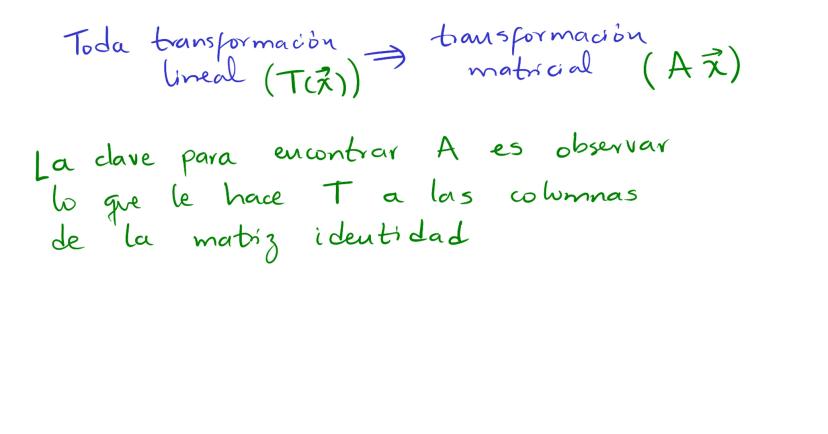 Toda transformación ⟹ transformación
lineal (T(x⃗)) matricial (A x⃗)
La clave para encontrar A es observar
lo que le hace T a las columnas
de la matriz identidad